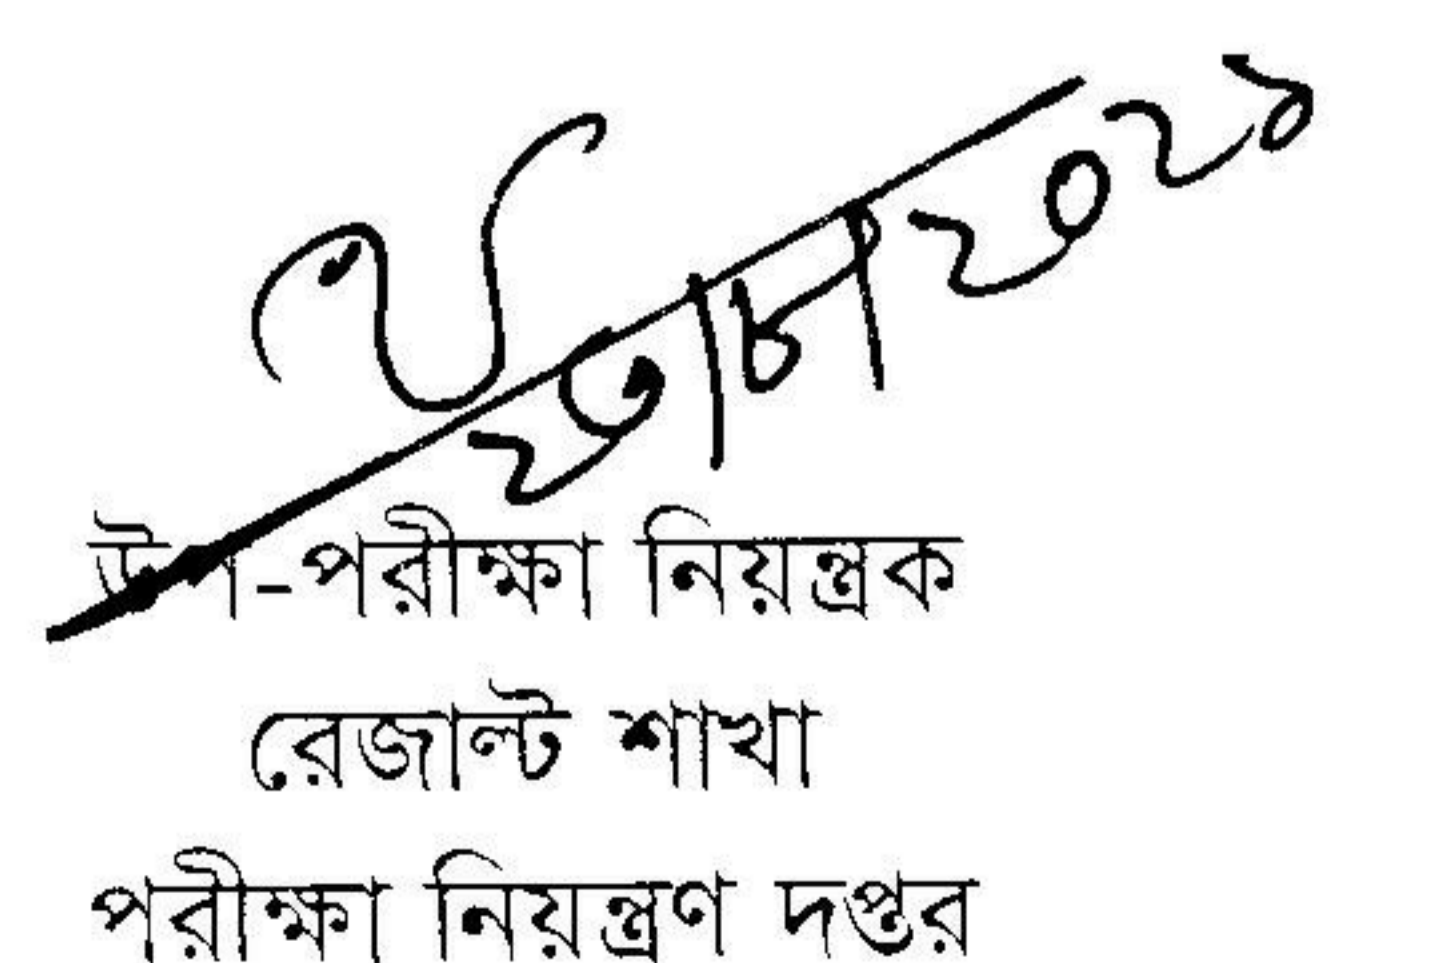 ২৩/৮/২০২১
উপ-পরীক্ষা নিয়ন্ত্রক
রেজাল্ট শাখা
পরীক্ষা নিয়ন্ত্রণ দপ্তর